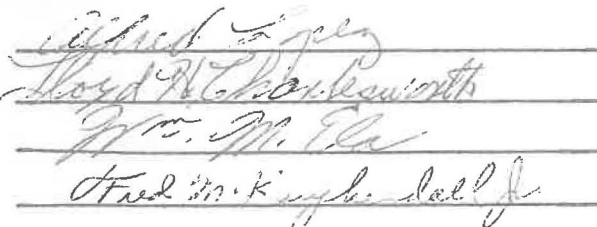 Alfred Lopez
Lloyd H. Charlesworth
Wm. M. Ela
Fred M. Kuykendall Jr